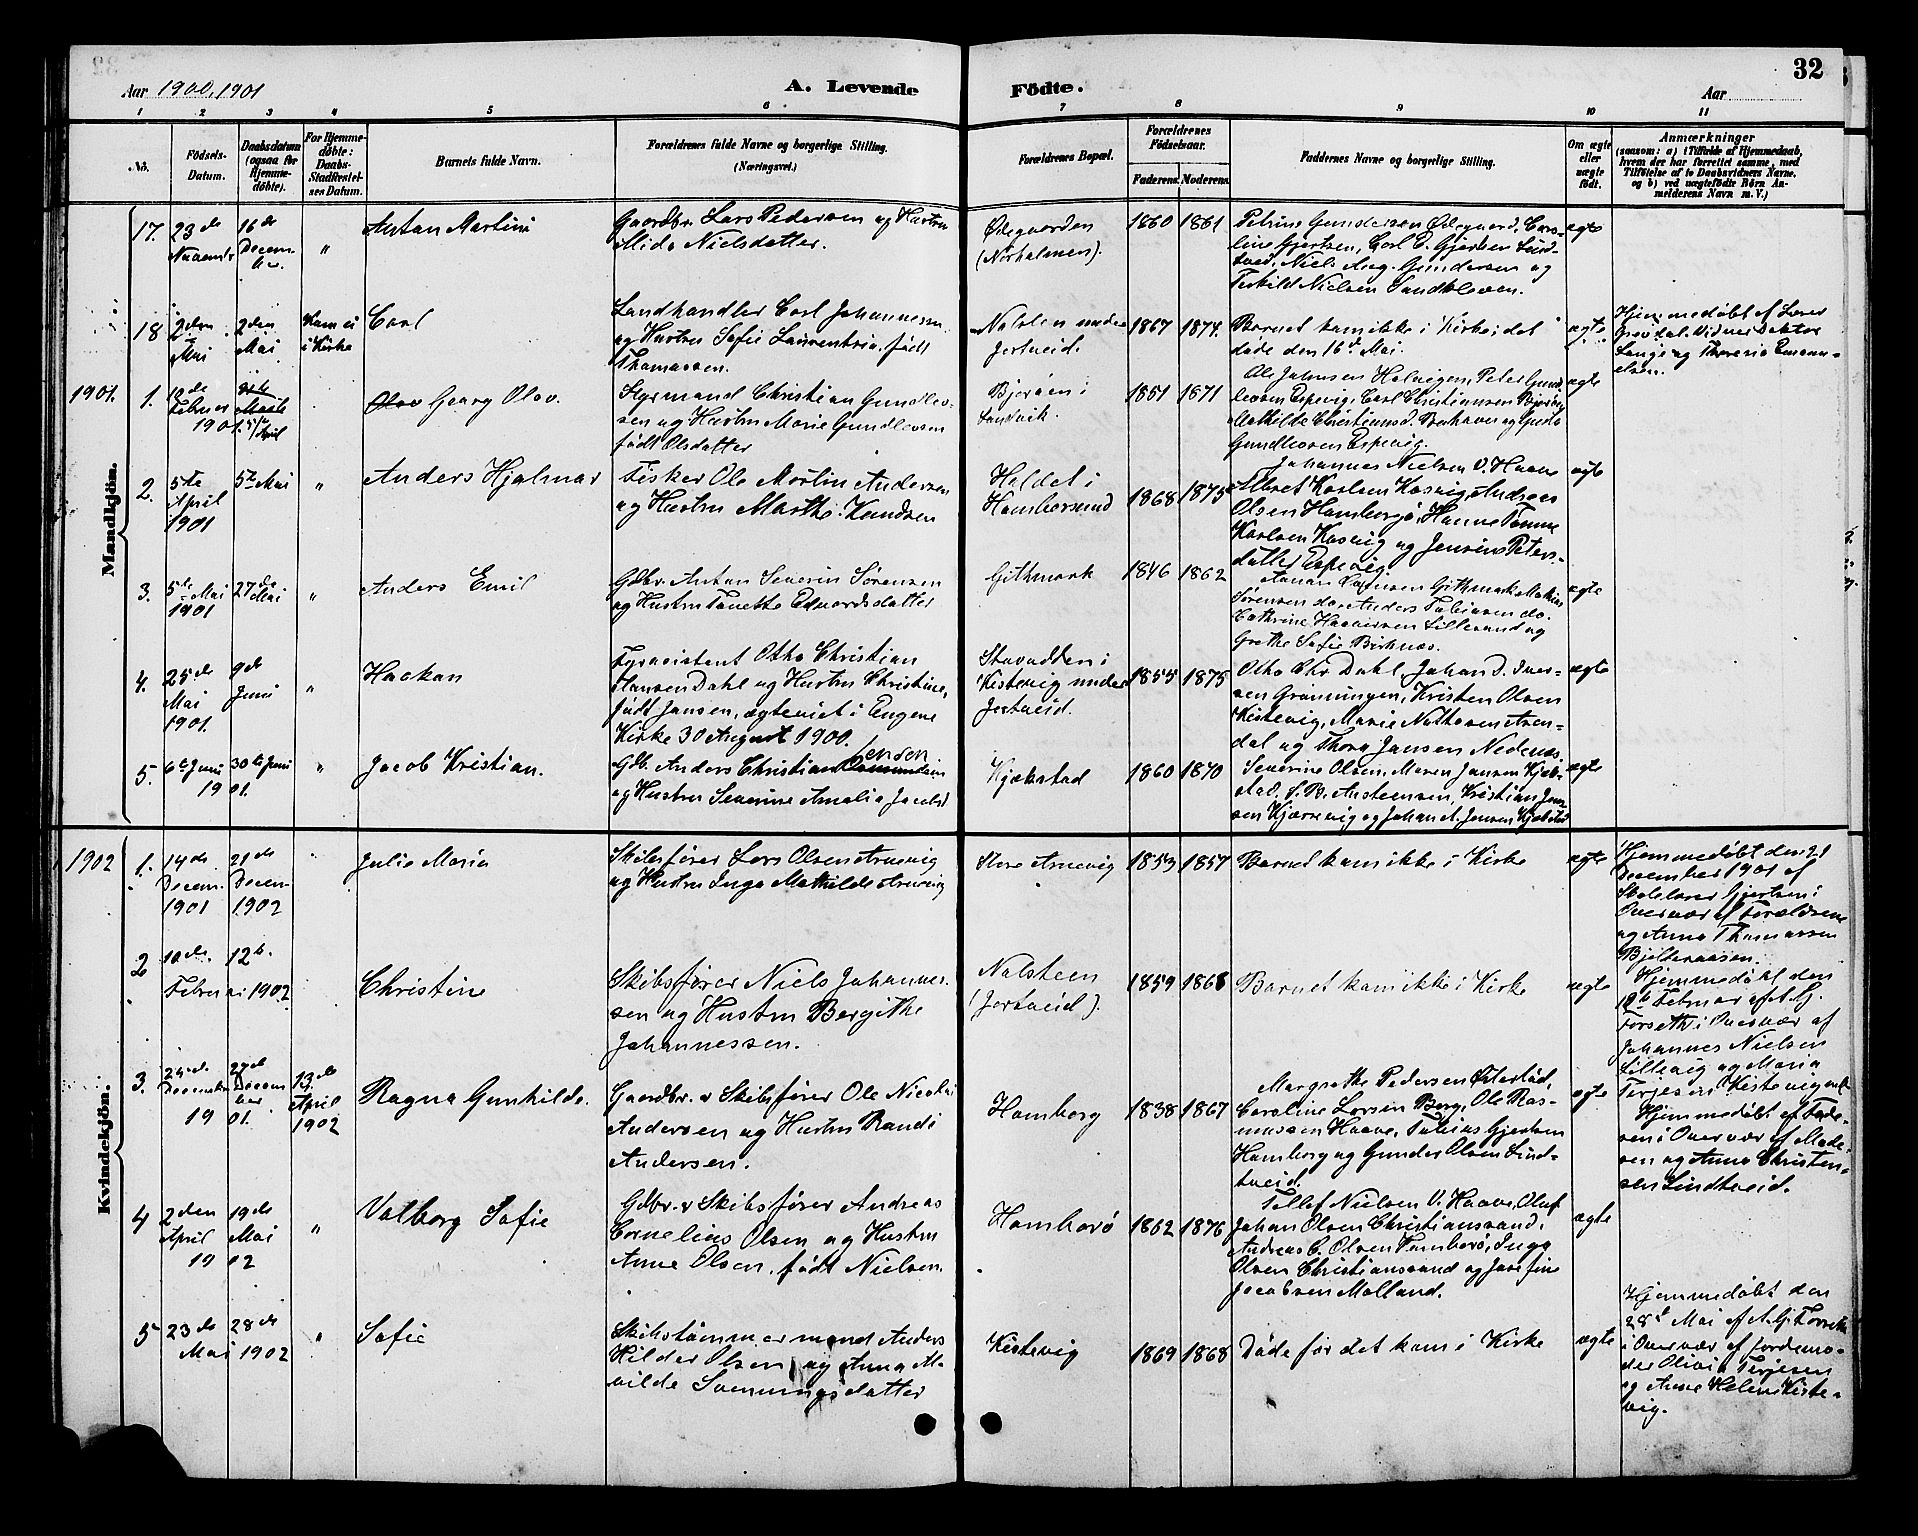 32
Aar 1900, 1901
A. Levende
Födte.
Aar
1 2 3 4 5 6 7 8 9 10 11
No.
Födsels-
Datum.
Daabsdatum
(ogsaa for
Hjemme-
döbte).
For Hjemme-
döbte:
Daabs-
Stadfæstel-
ses Datum.
Barnets fulde Navn.
Forældrenes fulde Navne og borgerlige Stilling.
(Næringsvei.)
Forældrenes Bopæl.
Forældrenes
Födselsaar.
Faderens. Moderens.
Faddernes Navne og borgerlige Stilling.
Om ægte
eller
uægte
födt.
Anmærkninger
(saasom: a) i Tilfælde af Hjemmedaab,
hvem der har forrettet samme, med
Tilföielse af to Daabsvidners Navne,
og b) ved uægtefödte Börn An-
melderens Navn m. V.)
Mandkjön.
17. 23de
Novembr
16de
Decem-
ber.
"
Antan Martini
Gaardbr. Lars Pedersen og Hustru
Mida Nielsdatter.
Ødegaarden
(Nørholmen).
1860 1861
Petrine Gundersen Ødegaard, Caro-
line Gjertsen, Carl E. Gjertsen Lind-
tveid, Niels Aug. Gundersen og
Terkild Nielsen Sandkleven.
ægte
18 2den
Mai
2den
Mai
Kom ei
i Kirke
Carl
Landhandler Carl Johannesen
og Hustru Sofie Laurentzia, født
Thomassen.
Nalsten under
Jortveid.
1867 1874.
Barnet kom ikke i Kirke; det
døde den 16de Mai.
ægte
Hjemmedøbt af Lærer
Grøvdal. Vidner Doktor
Lange og Theresia Emanu-
elsen.
1901. 1. 18de
Februar
1901.
Marts
5te
April
Olav Georg Olav.
Styrmand Christian Gundlev-
sen og Hustru Marie Gundlevsen
født Olsdatter
Bjorøen i
Sandvik
1851 1871
Ole Johnsen Halvigen, Peter Gund-
levsen Espevig, Carl Christiansen Bjorøen
Mathilde Christiansd. Berhaven og Gusta
Gundlevsen Espevig.
ægte
2. 5te
April
1901
5te Mai
"
Anders Hjalmar
Fisker Ole Martin Andersen
og Hustru Marthe Knudsen
Haldet i
Homborsund
1868 1875
Johannes Nielsen V. Haave
Albret Karlsen Kasvig, Andreas
Olsen Hamborgø, Hanne Tomine
Karlsen Kasvig og Jensine Peters-
datter Espevig.
ægte
3. 5te Mai
1901
27de
Mai
"
Anders Emil
Gdbr. Antan Severin Sørensen
og Hustru Tanette Edvardsdatter
Githmark
1846 1862
Githmark Mathias
Sørensen do. Anders Tobiassen do.
Cathrine Haaversen Lillesand og
Grethe Sofie Birknæs.
ægte
4. 25de
Mai
1901.
9de
Juni
"
Haakan
Fyrasistent Otto Christian
Hansen Dahl og Hustru Christine,
født Jansen, ægteviet i Eugene
Kirke 30 August 1900.
Stavodden i
Kistevig under
Jortveid.
1855 1875
Otto Chr Dahl, Johan D. Iver-
sen Grønningen, Kristen Olsen
Kistevig, Marie Nathasen Aren-
dal og Thora Jansen Nedenæs.
ægte
5. 6te Juni
1901.
30te Juni
"
Jacob Kristian.
Gdb. Anders Christian
og Hustru Severine Amalia Jacobsd
Kjækstad
1860 1870
Severine Olsen, Maren Jansen Kjæk-
stad, S. B. Austeensen, Kristian Jen-
sen Kjærrevig og Johan A. Jensen Kjækstad
ægte
Kvindekjön.
1902 1. 14de
Decem.
1901
21de
Decem-
1902
"
Julie Maria
Skibsfører Lars Olsen Arnevig
og Hustru Inga Mathilde Arnevig
Store Arnevig
1853 1857
Barnet kom ikke i Kirke
ægte
Hjemmedøbt den 21
December 1901 af
Skolelærer Gjertsen i
Overvær af Forældrene
og Anna Thomassen
Bjelteraasen.
2 10de.
Februar
12te.
1902
Christine
Skibsfører Niels Johannes-
sen og Hustru Bergithe
Johannessen.
Nalsteen
(Jortveid).
1859 1868
Barnet kom ikke i Kirke
ægte
Hjemmedøbt den
12te Februar af A. G.
Forseth i Overvær af
Johannes Nielsen
Lillevig og Maria
Terjesen Kistevig
3. 24de
December
1901.
27de
Decem
ber
13de
April
1902
Ragna Gunhilde.
Gaardbr. & Skibsfører Ole Nicolai
Andersen og Hustru Randi
Andersen.
Homborg
1838 1867
Margrethe Pedersen Østerlad,
Caroline Larsen Berg, Ole Ras-
mussen Haave, Tobias Gjertsen
Homborg og Gunder Olsen Lind-
tveid.
ægte
Hjemmedøbt af Fade-
ren i Overvær af Mode-
ren og Anna Christen-
sen Lindtveid.
4 2den
April
1902
19de
Mai
"
Valborg Sofie
Gdbr. & Skibsfører Andreas
Cornelius Olsen og Hustru
Anne Olsen, født Nielsen
Homborø
1862 1876
Tellef Nielsen V. Haave, Oluf
Johan Olsen Christianssand,
Andreas C. Olsen Homborø, Inga
Olsen Christianssand og Josefine
Jacobsen Molland.
ægte
5 23de
Mai
28de
1902
"
Sofie
Skibstømmermand Anders
Hilder Olsen og Anna Ma-
vilde Svenningsdatter
Kistevig
1869 1868
Døde før det kom i Kirke
ægte
Hjemmedøbt den
28de Mai af A. G. Forseth
i Overvær af Jordemo-
der Olivia Terjesen
og Anne Helene Kiste-
vig.